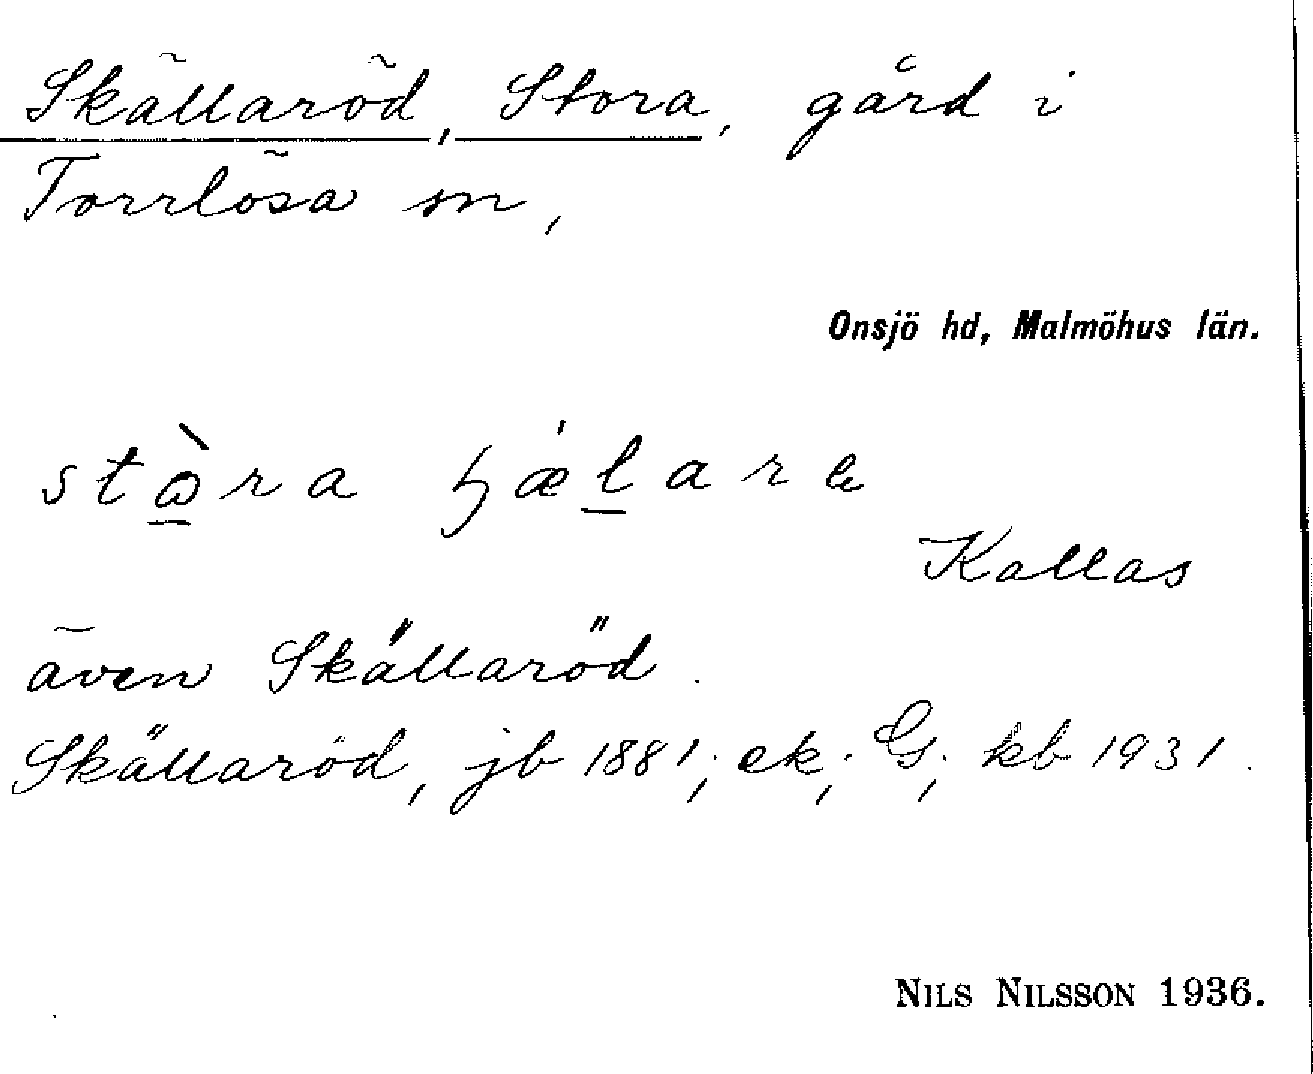 Skällaröd, Stora, gård i
Torrlösa sn,
Onsjö hd, Malmöhus län.
stòra ɧǽlara
Kallas
även Skällaröd.
Skällaröd, jb 1881; ek; G; kb 1931.
NILS NILSSON 1936.